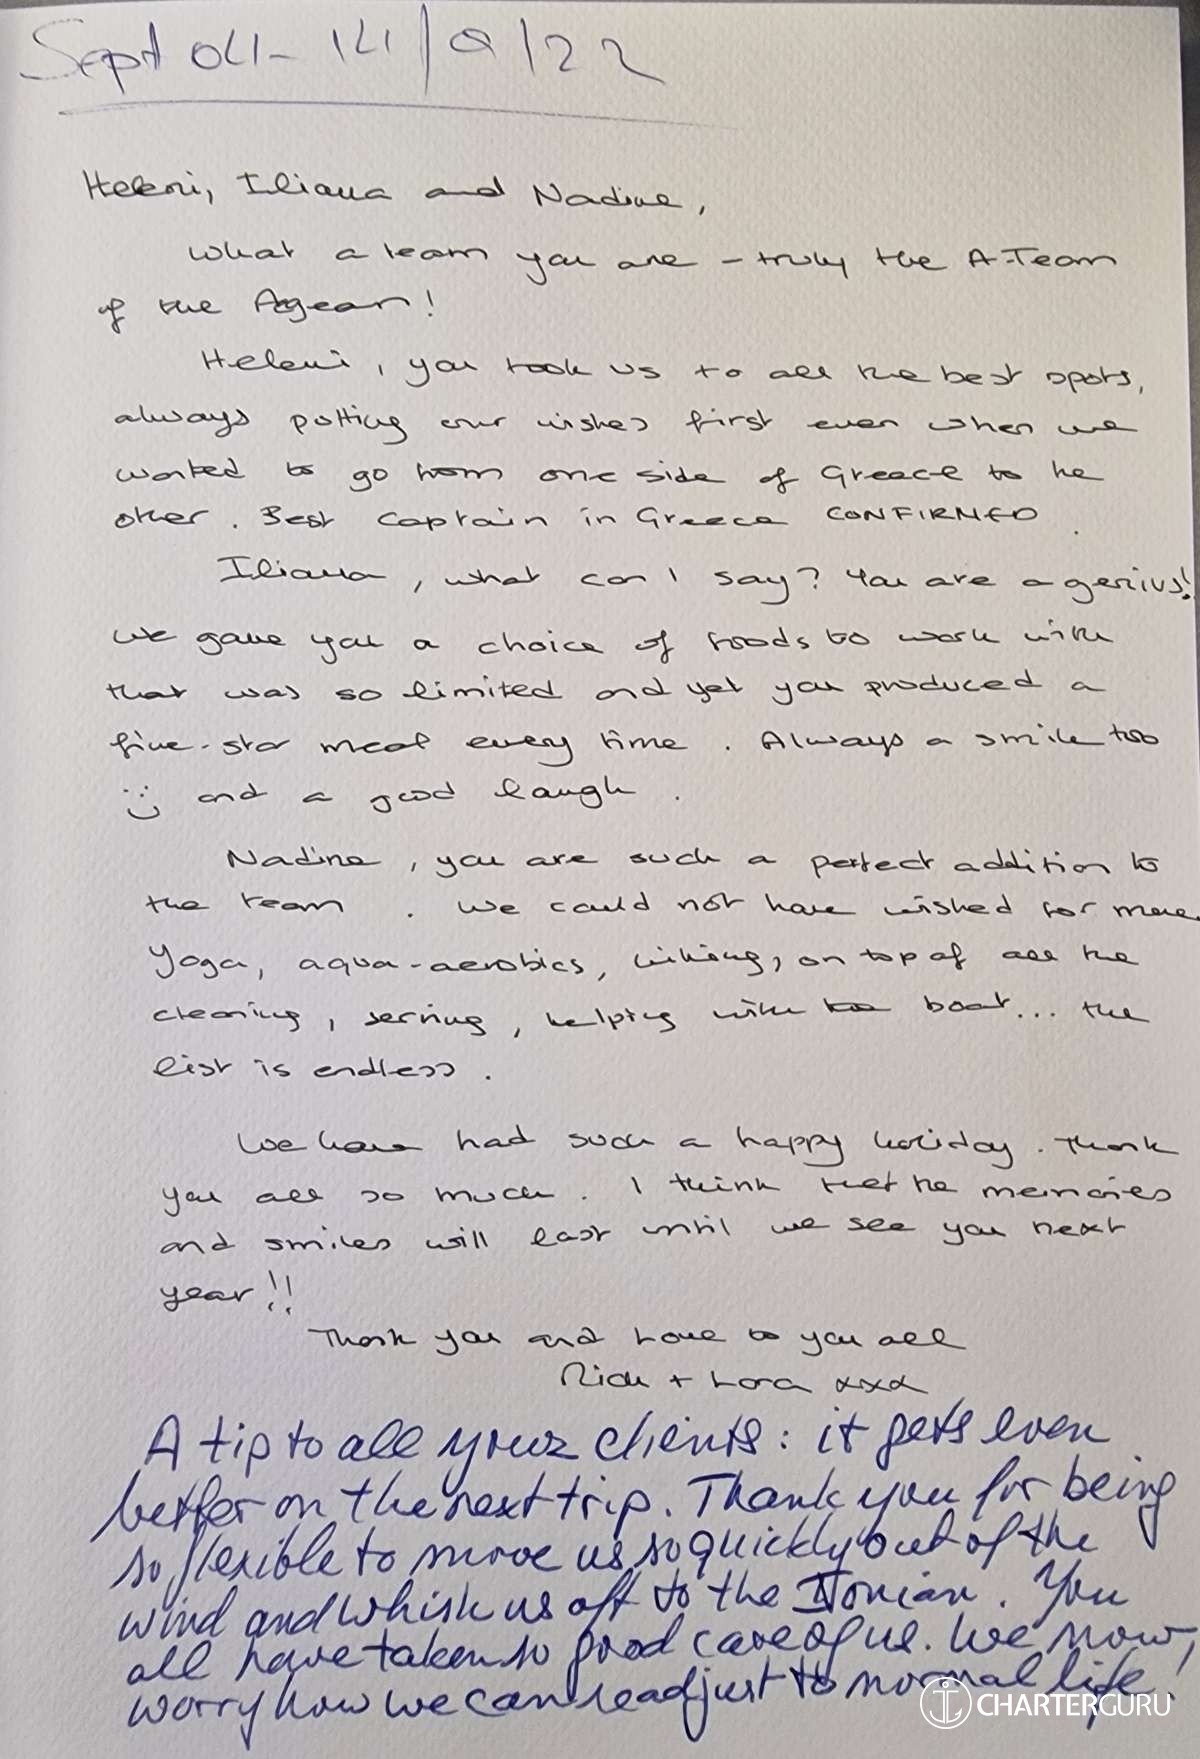 Sept 04 - 14/9/22
Heleni, Iliana and Nadine,
What a team you are - truly the A-Team
of the Agean!
Heleni, you took us to all the best spots,
always putting our wishes first even when we
wanted to go from one side of Greece to the
other. Best captain in Greece CONFIRMED.
Iliana, what can I say? You are a genius!
We gave you a choice of foods to work with
that was so limited and yet you produced a
five-star meal every time. Always a smile too
:) and a good laugh.
Nadine, you are such a perfect addition to
the team. We could not have wished for more.
Yoga, aqua-aerobics, hiking, on top of all the
cleaning, serving, helping with the boat... the
list is endless.
We have had such a happy holiday. Thank
you all so much. I think that the memories
and smiles will last until we see you next
year!!
Thank you and Love to you all
Rick + Lora xxx
A tip to all your clients: it gets even
better on the next trip. Thank you for being
so flexible to move us so quickly out of the
wind and whisk us off to the Ionian. You
all have taken so good care of us. We now,
worry how we can readjust to normal life!
CHARTERGURU